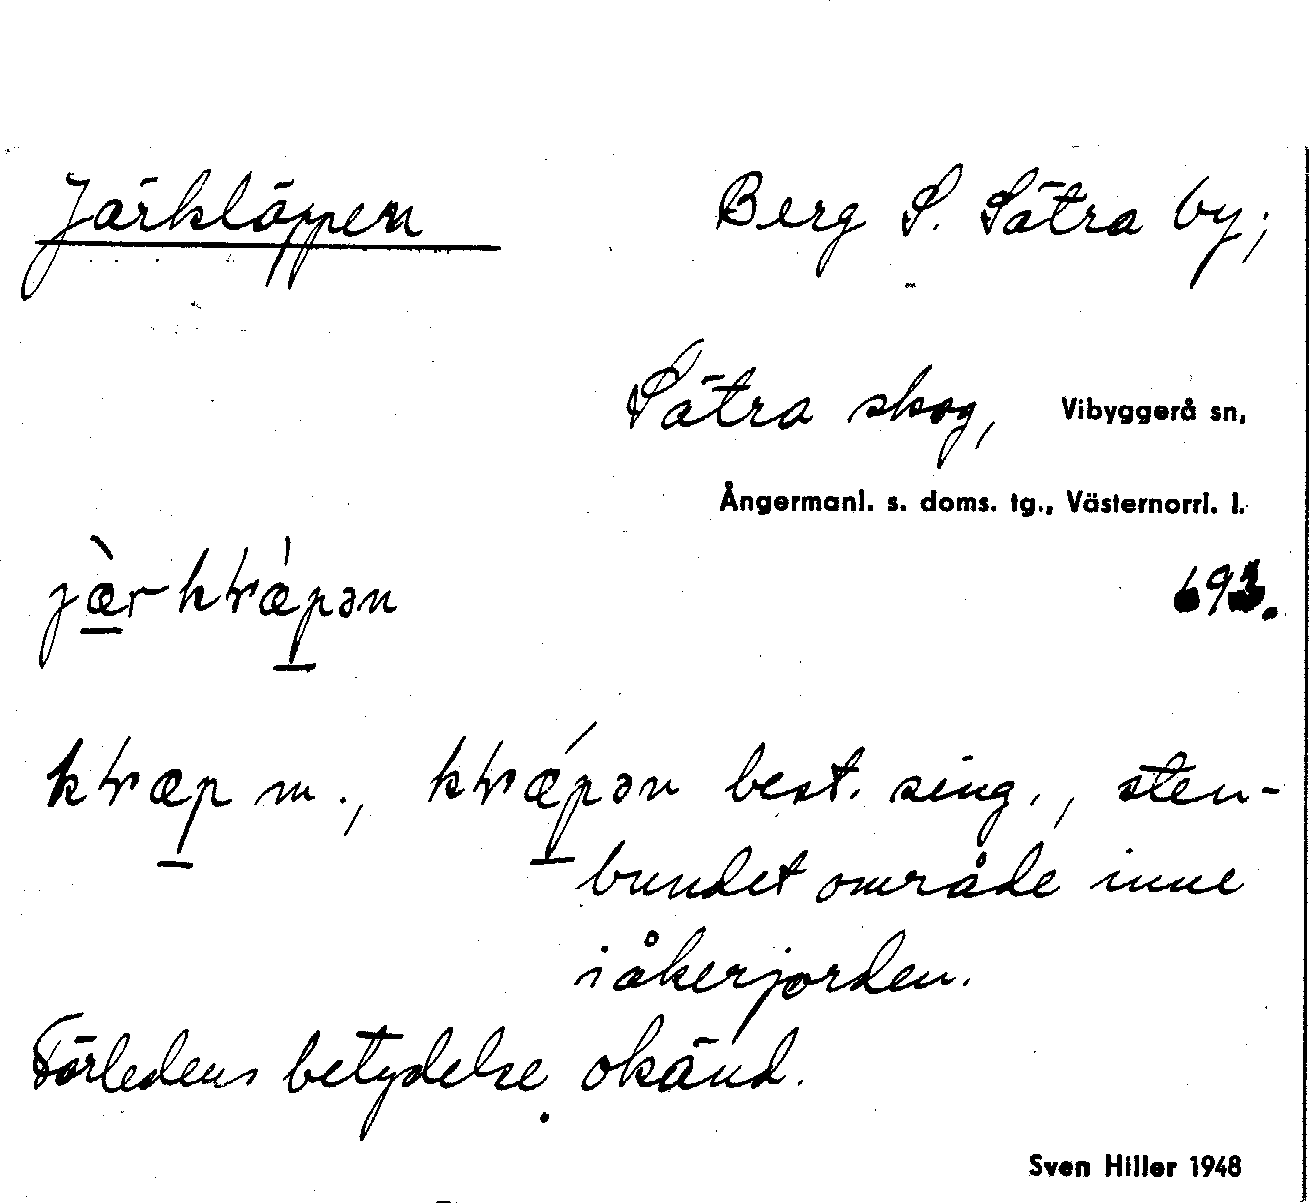 Järkläppen
Berg S. Sätra by;
Sätra skog, Vibyggerå sn,
Ångermanl. s. doms. tg., Västernorrl. l.
693.
m., best. sing., sten-
bundet område inne
i åkerjorden.
Förledens betydelse okänd.
Sven Hiller 1948